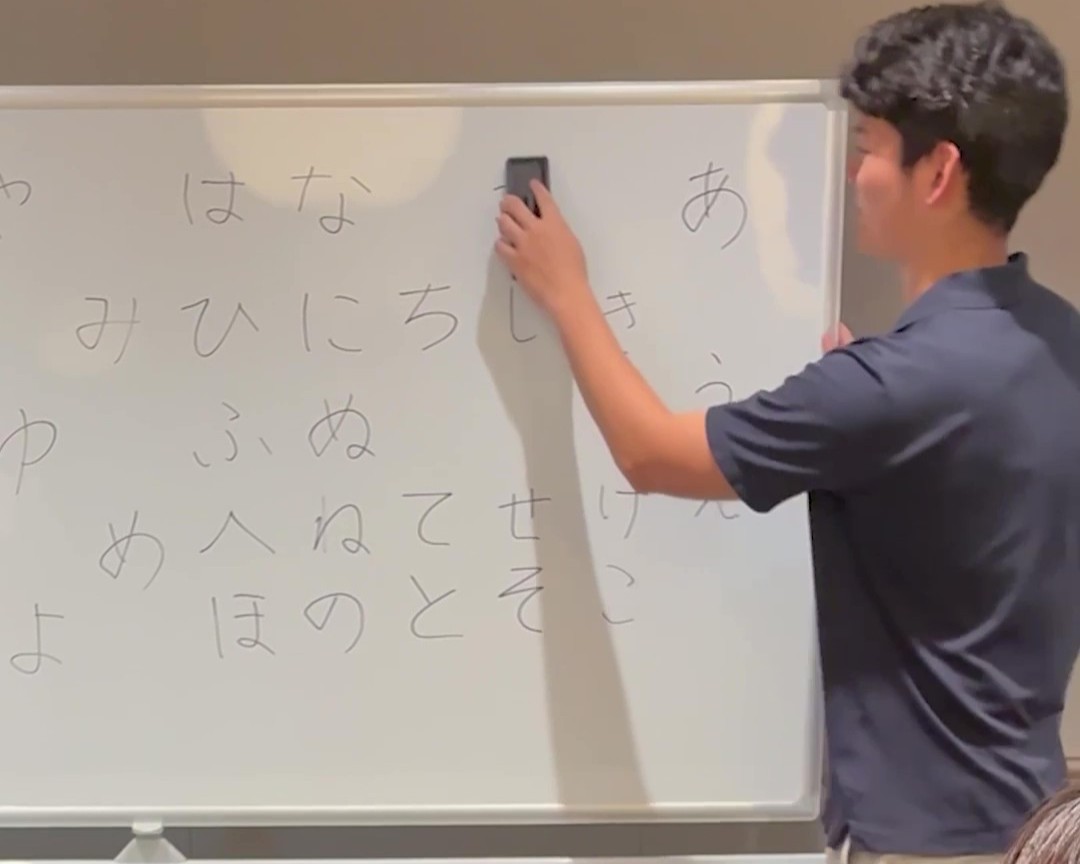 あ う え
き け こ
し せ そ
ち て と
な に ぬ ね の
は ひ ふ へ ほ
み め
や ゆ よ